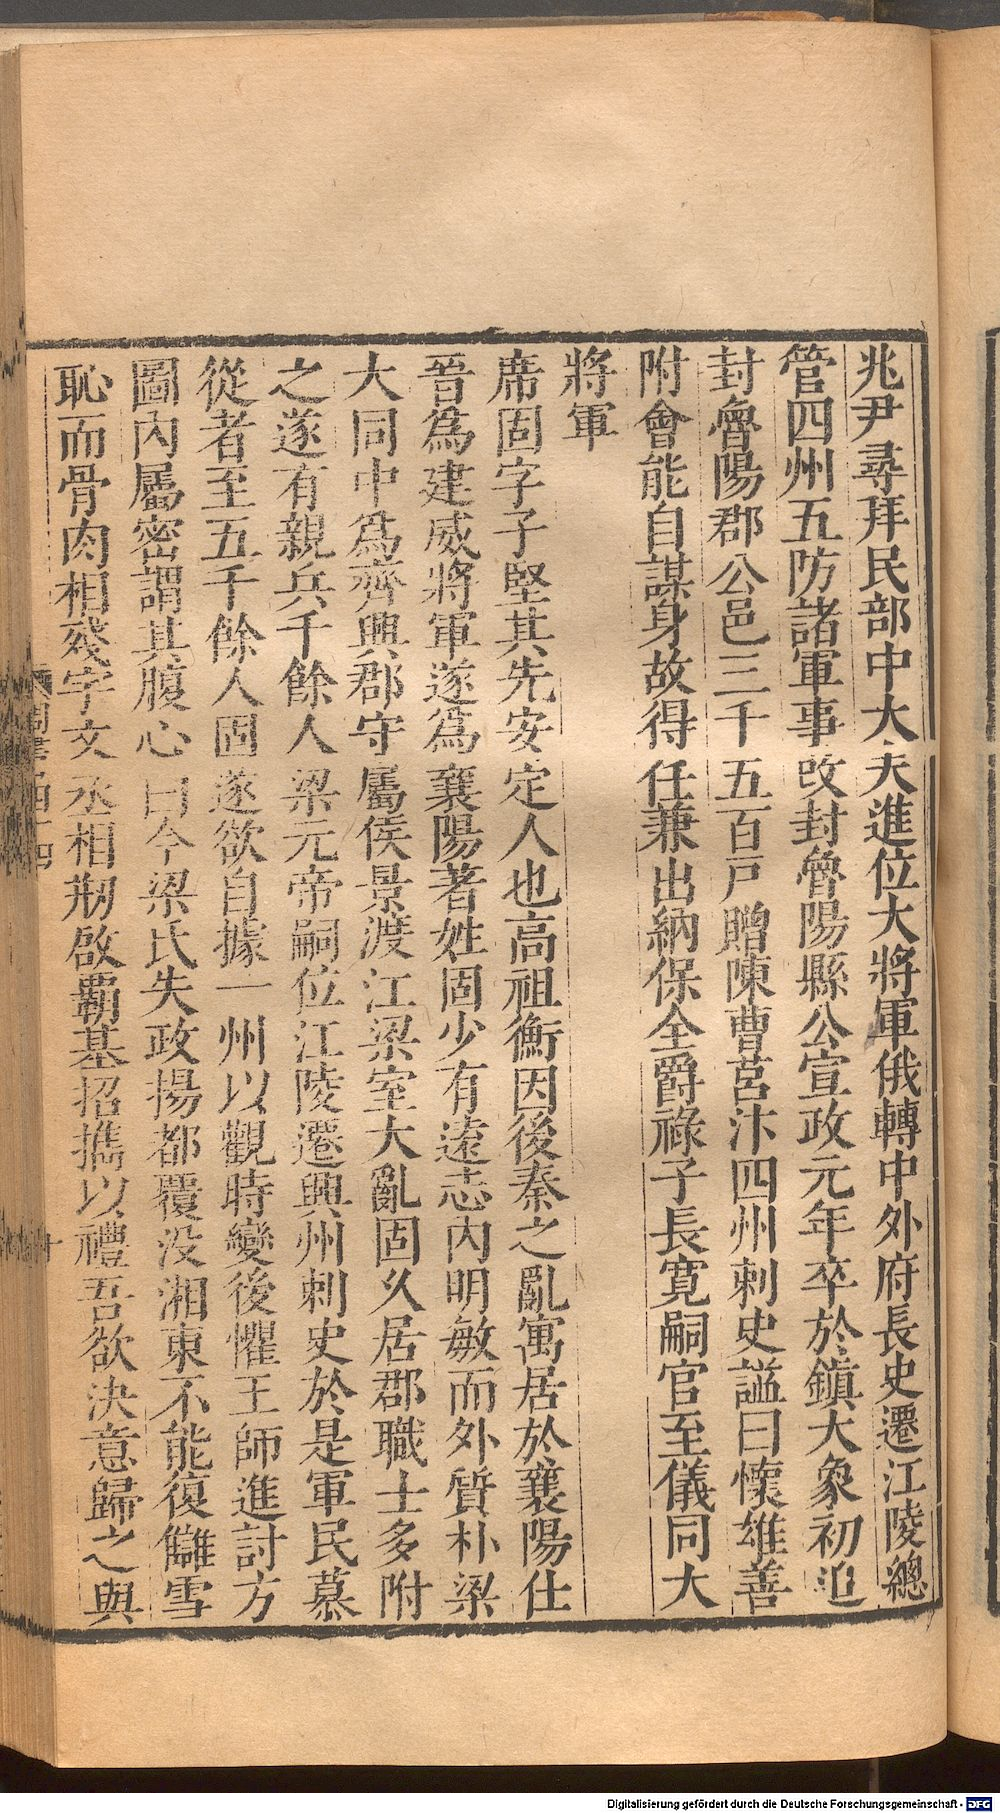 兆尹尋拜民部中大夫進位大將軍俄轉中外府長史遷江陵總
管四州五防諸軍事改封魯陽縣公宣政元年卒於鎮大象初追
封魯陽郡公邑三千五百戸贈陳曹莒汴四州刺史謚曰懷雄善
附會能自謀身故得任兼出納保全爵祿子長寛嗣官至儀同大
將軍
席固字子堅其先安定人也高祖衡因後秦之亂寓居於襄陽仕
晉爲建威將軍遂爲襄陽著姓固少有遠志内明敏而外質朴梁
大同中爲齊興郡守屬侯景渡江梁室大亂固久居郡職士多附
之遂有親兵千餘人梁元帝嗣位江陵遷興州刺史於是軍民慕
從者至五千餘人固遂欲自據一州以觀時變後懼王師進討方
圖内屬密謂其腹心曰今梁氏失政揚都覆没湘東不能復讎雪
恥而骨肉相殘宇文丞相刱啟霸基招攜以禮吾欲決意歸之與
Digitalisierung gefördert durch die Deutsche Forschungsgemeinschaft - DFG